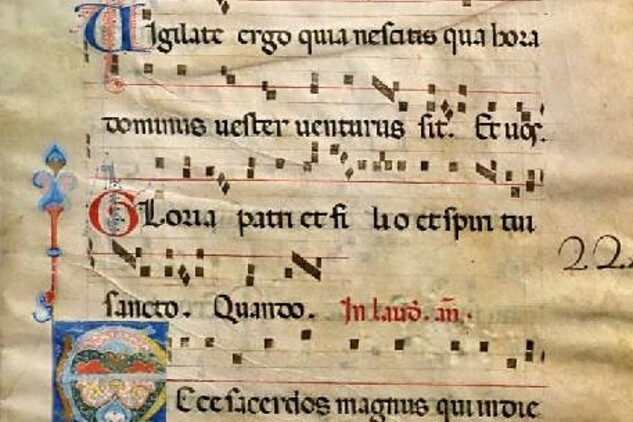 Vigilate ergo quia nescitis qua hora
dominus uester uenturus sit. Et uos.
Gloria patri et fi lio et spiri tui
22
sancto. Quando. In laud. an.
Ecce sacerdos magnus qui in die